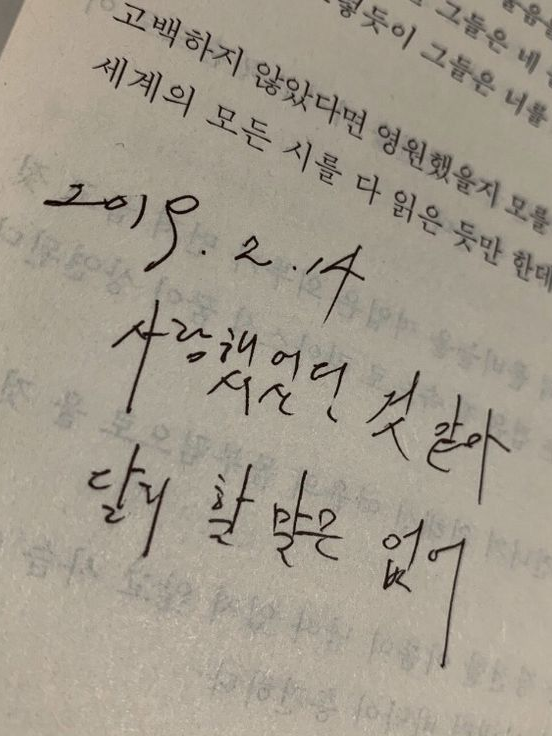 그들은 네
그들은 너를
고백하지 않았다면 영원했을지 모를
세계의 모든 시를 다 읽은 듯만 한데
2019. 2. 14
사랑했었던 것 같아
달리 할 말은 없어